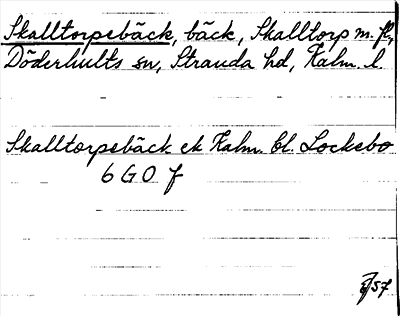 Skalltorpsbäck, bäck, Skalltorp m. fl.,
Döderhults sn, Stranda hd, Kalm. l.
Skalltorpsbäck ek Kalm. bl. Lockebo
6 G 0 f
57